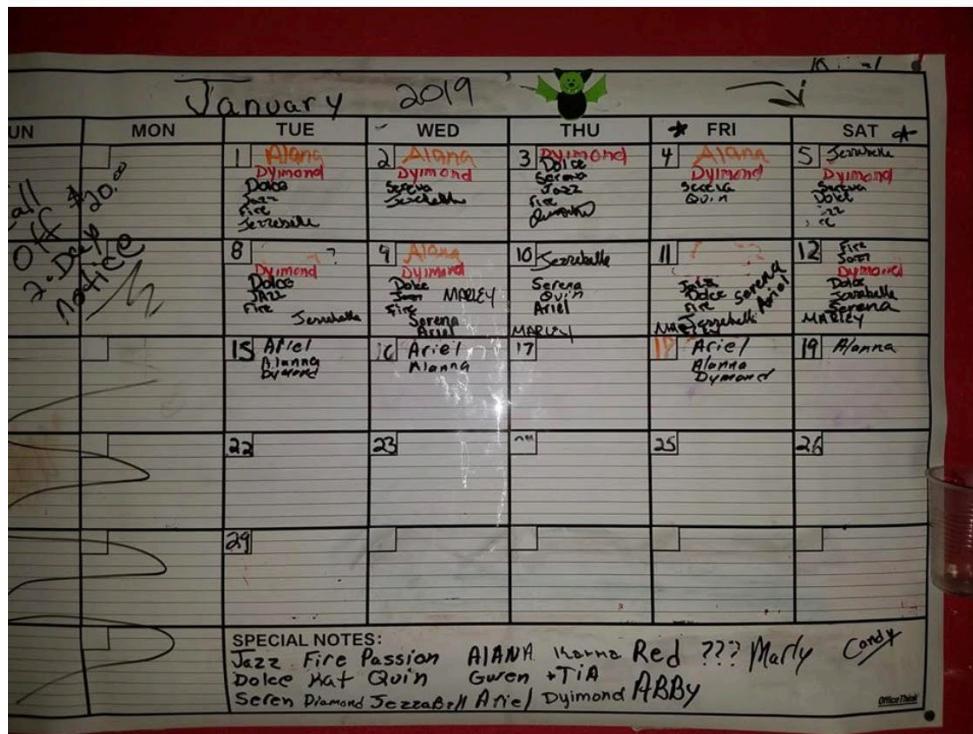 January 2019
UN MON TUE WED THU FRI SAT
all
Off $20.00
2. Day
Notice
1 Alana
Dyimond
Dolce
Jazz
Fire
Jezzebelle
2 Alana
Dyimond
3 Dyimond
Dolce
Serena
Jazz
Fire
4 Alana
Dyimond
Quin
5
Dyimond
8 ?
Dyimond
Dolce
Jazz
Fire
Jezzebelle
9 Alana
Dyimond
Dolce
MARLEY
Fire
Serena
Ariel
10 Jezzebelle
Serena
Quin
Ariel
MARLEY
11
Dolce
Fire
Serena
Ariel
12 Fire
Dyimond
Dolce
Jezzebelle
Serena
MARLEY
15 Ariel
Alanna
Dymond
16 Ariel
Alanna
17
18 Ariel
Alanna
Dymond
19 Alanna
22
23
25
26
29
SPECIAL NOTES:
Jazz Fire Passion AlANA Karma Red ??? Marly Candy
Dolce Kat Quin Gwen + TiA
Seren Diamond JezzaBell Ariel Dyimond ABBy
OfficeThink